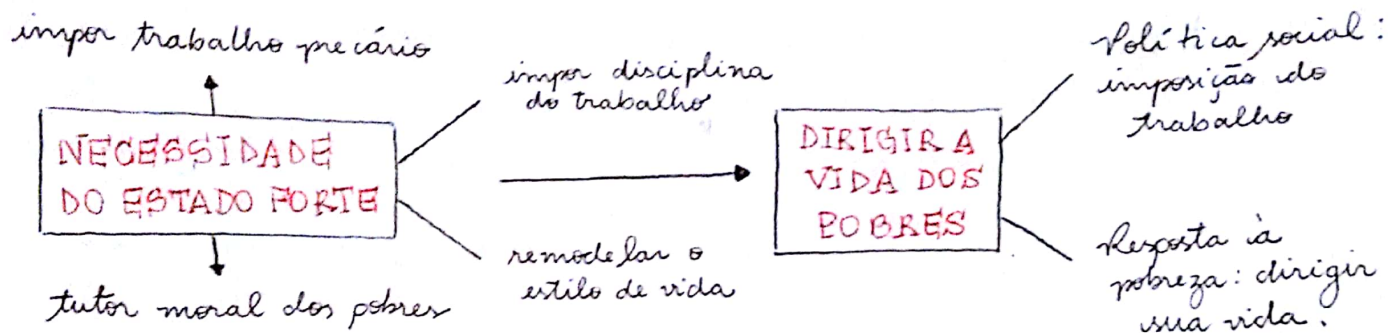 impor trabalho precário
NECESSIDADE
DO ESTADO FORTE
tutor moral dos pobres
impor disciplina
do trabalho
remodelar o
estilo de vida
DIRIGIR A
VIDA DOS
POBRES
Política social:
imposição do
trabalho
Resposta à
pobreza: dirigir
sua vida.